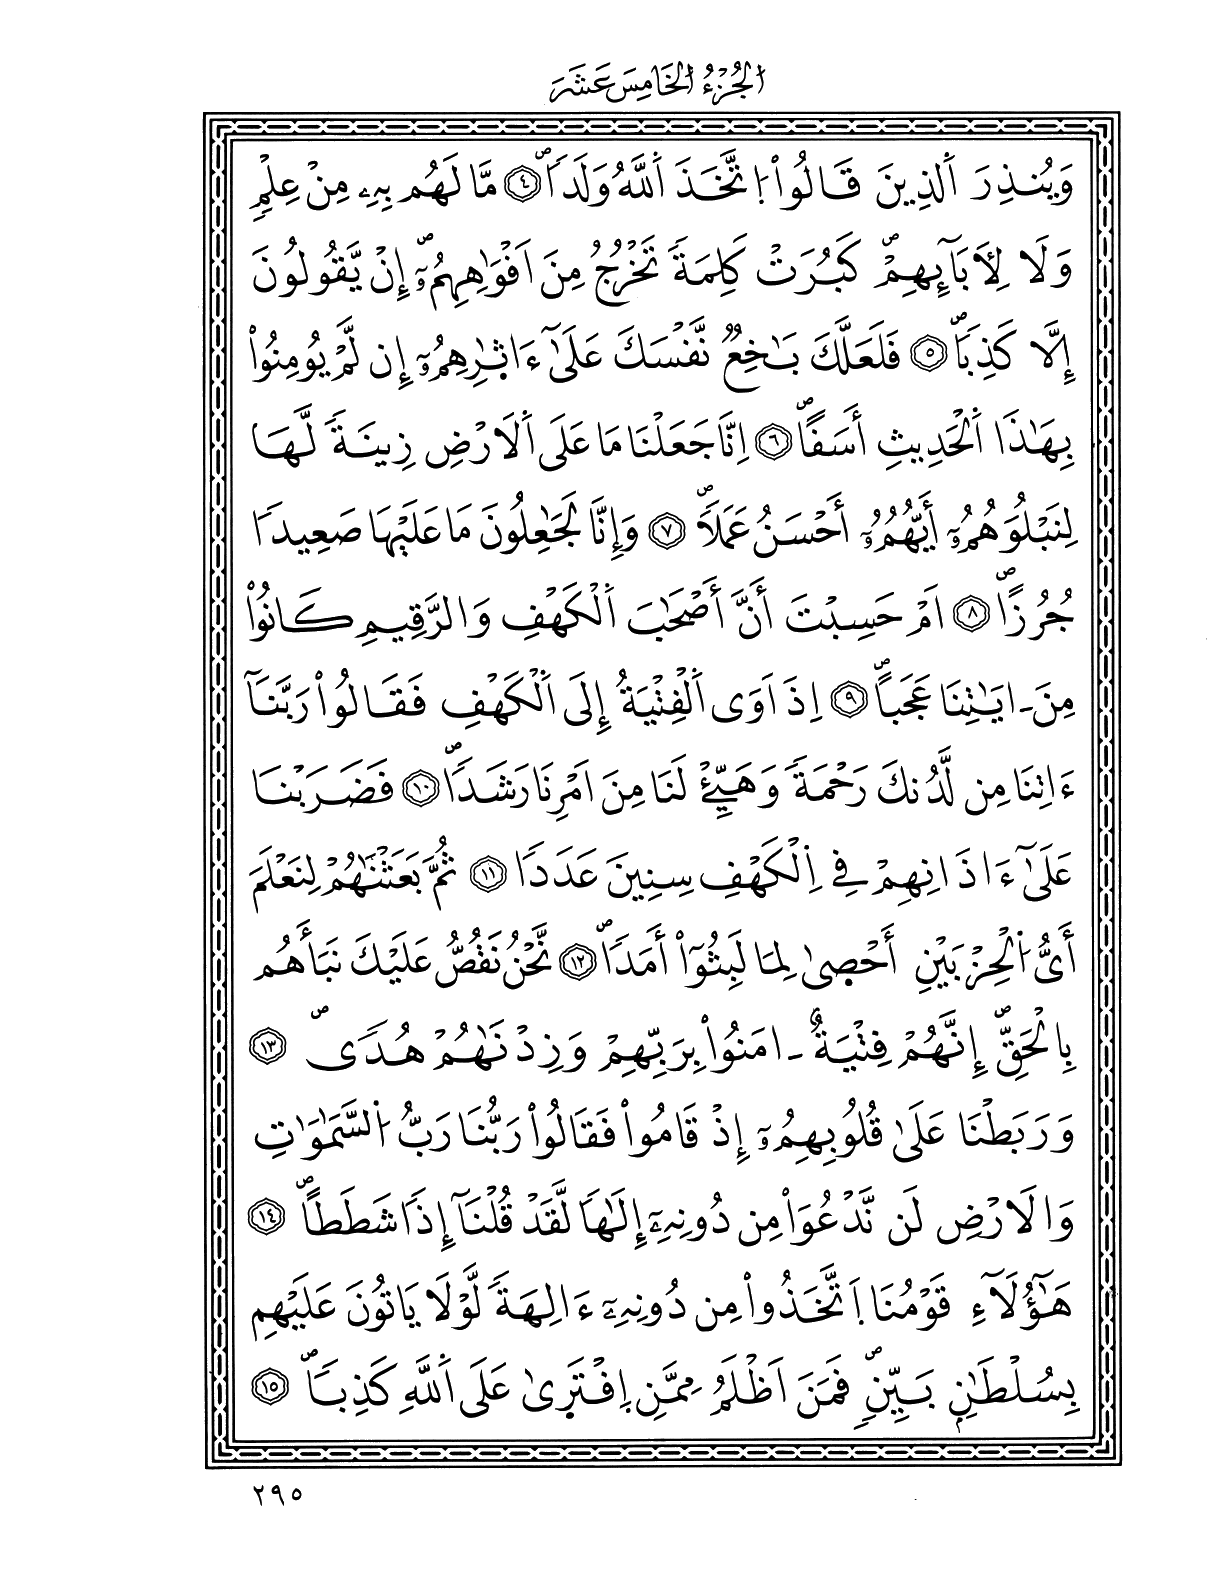 الجُزْءُ الخَامِسَ عَشَرَ
وَيُنذِرَ اَ۬لذِينَ قَالُواْ اُ۪تَّخَذَ اَ۬للَّهُ وَلَداٗۖ ٤ مَّا لَهُم بِهِۦ مِنْ عِلْمٖ
وَلَا لِأٓبَآئِهِمْۖ كَبُرَتْ كَلِمَةٗ تَخْرُجُ مِنَ اَفْوَٰهِهِمُۥٓۖ إِنْ يَّقُولُونَ
إِلَّا كَذِباٗۖ ٥ فَلَعَلَّكَ بَٰخِعٞ نَّفْسَكَ عَلَىٰٓ ءَاثٰ۪رِهِمُۥٓ إِن لَّمْ يُومِنُواْ
بِهَٰذَا اَ۬لْحَدِيثِ أَسَفاًۖ ٦ اِنَّا جَعَلْنَا مَا عَلَى اَ۬لَارْضِ زِينَةٗ لَّهَا
لِنَبْلُوَهُمُۥٓ أَيُّهُمُۥٓ أَحْسَنُ عَمَلاٗۖ ٧ وَإِنَّا لَجَٰعِلُونَ مَا عَلَيْهَا صَعِيداٗ
جُرُزاًۖ ٨ اَمْ حَسِبْتَ أَنَّ أَصْحَٰبَ اَ۬لْكَهْفِ وَالرَّقِيمِ كَانُواْ
مِنَ اٰيَٰتِنَا عَجَباًۖ ٩ اِذَ اَوَى اَ۬لْفِتْيَةُ إِلَى اَ۬لْكَهْفِ فَقَالُواْ رَبَّنَآ
ءَاتِنَا مِن لَّدُنكَ رَحْمَةٗ وَهَيِّئْ لَنَا مِنَ اَمْرِنَا رَشَداٗۖ ١٠ فَضَرَبْنَا
عَلَىٰٓ ءَاذَانِهِمْ فِي اِ۬لْكَهْفِ سِنِينَ عَدَداٗ ١١ ثُمَّ بَعَثْنَٰهُمْ لِنَعْلَمَ
أَيُّ اُ۬لْحِزْبَيْنِ أَحْص۪ىٰ لِمَا لَبِثُوٓاْ أَمَداٗۖ ١٢ نَّحْنُ نَقُصُّ عَلَيْكَ نَبَأَهُم
بِالْحَقِّۖ إِنَّهُمْ فِتْيَةٌ اٰمَنُواْ بِرَبِّهِمْ وَزِدْنَٰهُمْ هُدىٗۖ ١٣
وَرَبَطْنَا عَلَىٰ قُلُوبِهِمُۥٓ إِذْ قَامُواْ فَقَالُواْ رَبُّنَا رَبُّ اُ۬لسَّمَٰوَٰتِ
وَالَارْضِ لَن نَّدْعُوَاْ مِن دُونِهِۦٓ إِلَٰهاٗ لَّقَدْ قُلْنَآ إِذاٗ شَطَطاًۖ ١٤
هَٰٓؤُلَآءِ قَوْمُنَا اَ۪تَّخَذُواْ مِن دُونِهِۦٓ ءَالِهَةٗ لَّوْلَا يَاتُونَ عَلَيْهِم
بِسُلْطَٰنِۢ بَيِّنٖۖ فَمَنَ اَظْلَمُ مِمَّنِ اِ۪فْتَر۪ىٰ عَلَى اَ۬للَّهِ كَذِباٗۖ ١٥
٢٩٥